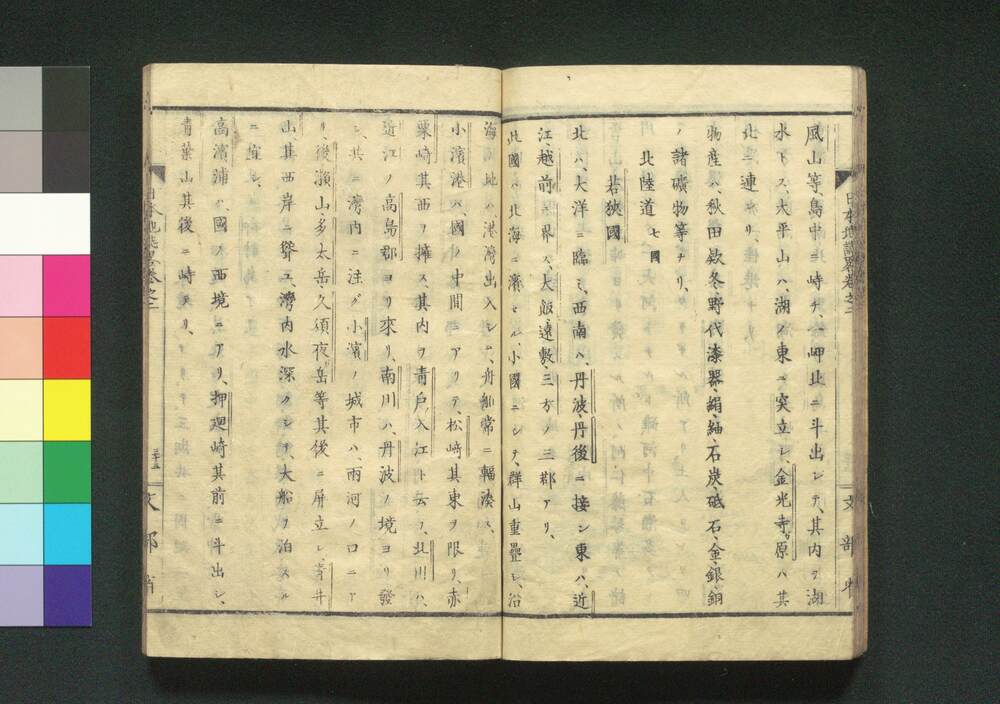 風山等、島中ニ峙チ、一岬北ニ斗出シテ、其内ヲ湖
水トス、大平山ハ、湖ノ東ニ突立シ、金光寺原ハ其
北ニ連ナリ、
物産ハ、秋田欸冬、野代漆器、絹、紬、石炭、砥石、金、銀、銅
ノ諸礦物等ナリ、
北陸道 七國
若狹國
北ハ、大洋ニ臨ミ、西南ハ、丹波、丹後ニ接シ東ハ、近
江、越前ニ界ス、大飯、遠敷、三方ノ三郡アリ、
此國ハ、北海ニ濱セル、小國ニシテ、群山重疊シ、沿
海ノ地ハ、港灣出入シ、舟舶常ニ輻湊ス、
小濱港ハ、國ノ中間ニアリテ、松﨑其東ヲ限リ、赤
栗崎其西ヲ擁ス、其内ヲ青戸入江ト云フ、北川ハ、
近江ノ高島郡ヨリ來リ、南川ハ、丹波ノ境ヨリ發
シ、共ニ灣内ニ注グ、小濱ノ城市ハ、兩河ノ口ニア
リ、後瀨山、多太岳、久須夜岳等其後ニ屏立シ、青井
山、其西岸ニ聳ユ、灣内水深クシテ、大船ヲ泊スル
ニ宜シ、
高濱浦ハ、國ノ西境ニアリ、押𢌞崎其前ニ斗出シ、
青葉山其後ニ峙テリ、
日本地誌略卷之二
文部省